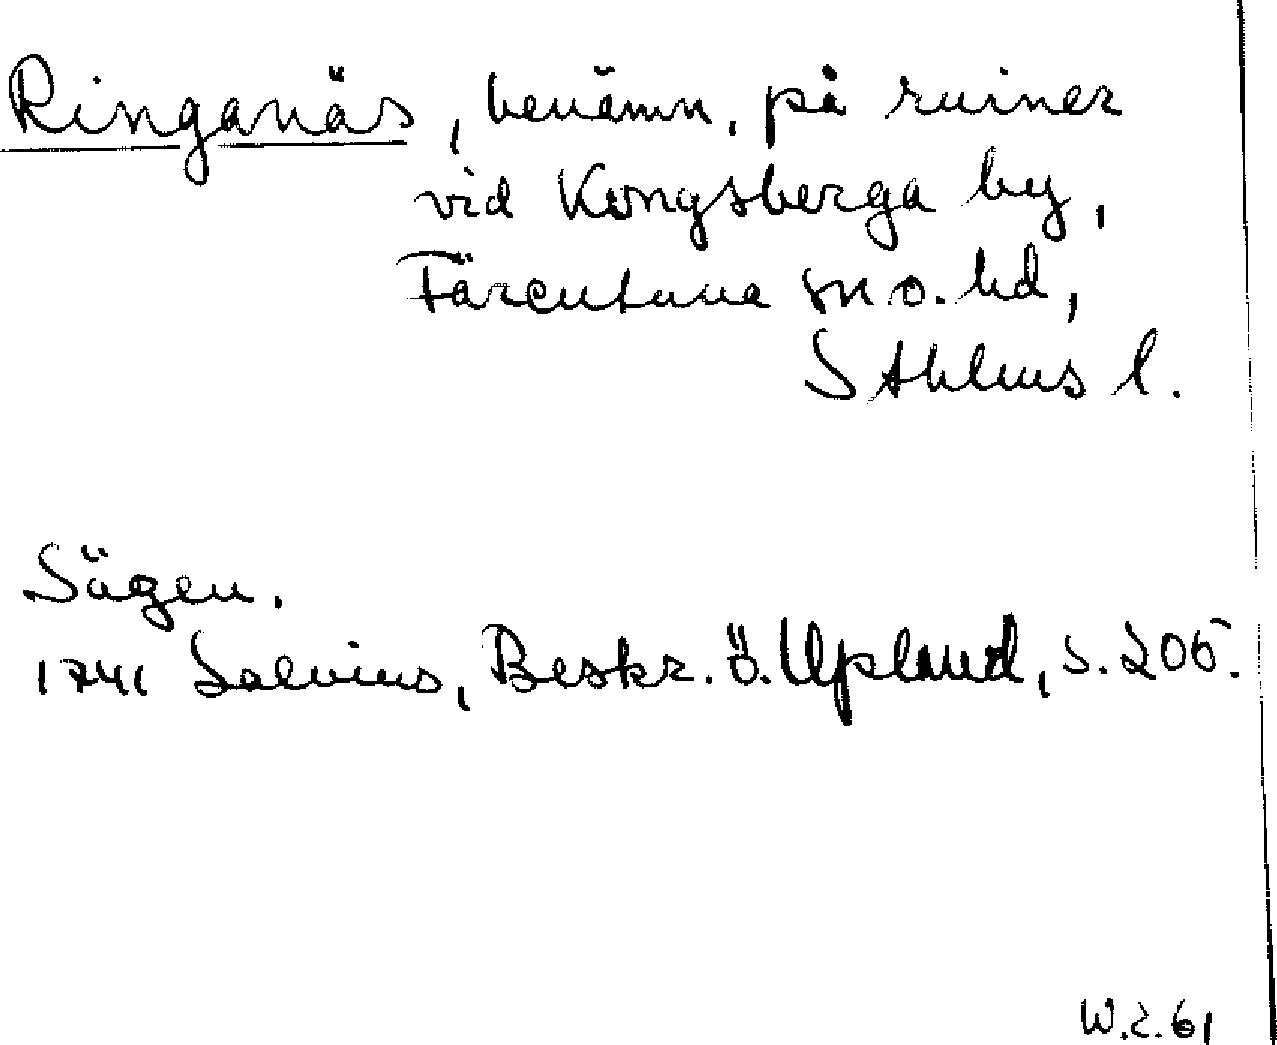 Ringanäs, benämn. på ruiner
vid Kongsberga by,
Färentuna sn o. hd,
Sthlms l.
Sägen.
1741 Salvius, Beskr. ö. Upland, s. 206.
W.2.61